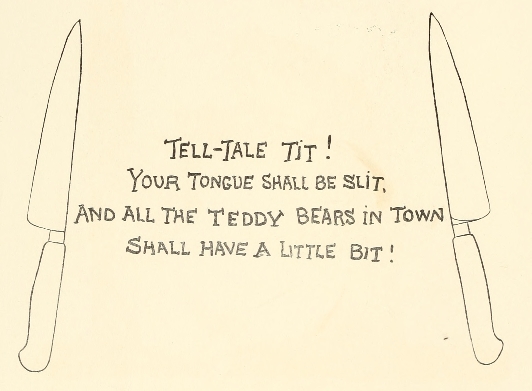 TELL-TALE TIT!
YOUR TONGUE SHALL BE SLIT,
AND ALL THE TEDDY BEARS IN TOWN
SHALL HAVE A LITTLE BIT!